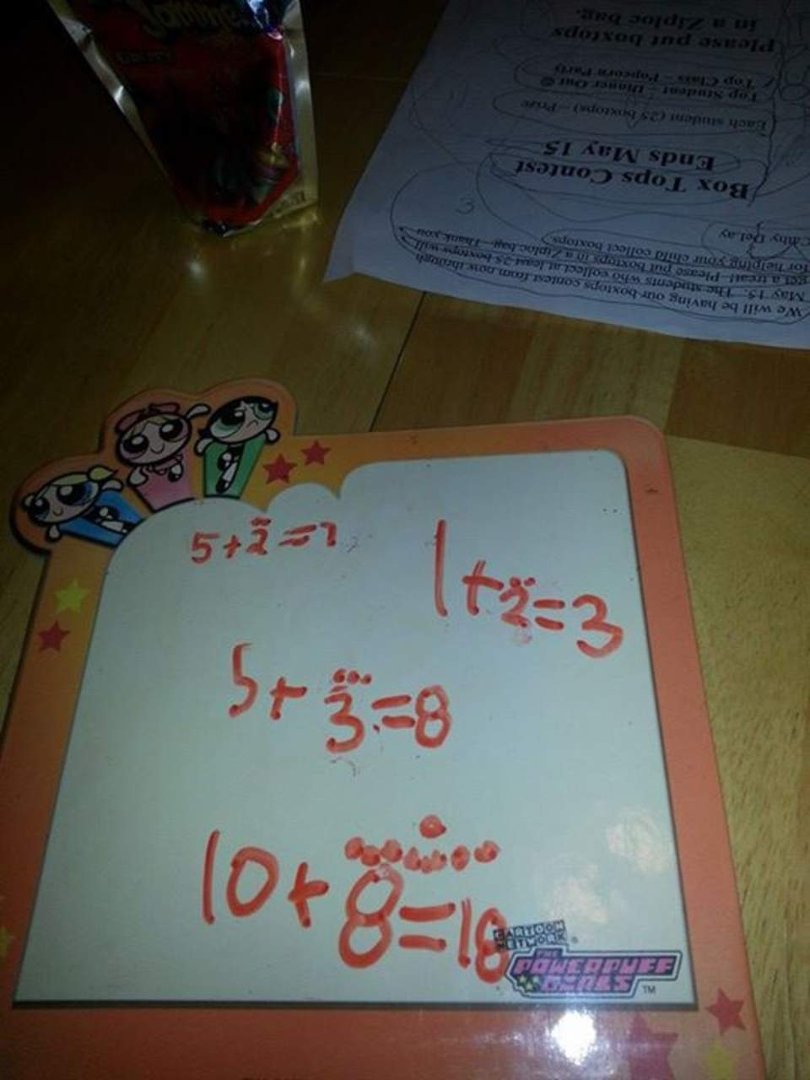 Jammers
in a Ziploc bag.
Please put boxtops
Top Class - Popcorn Party
Top Student - Dinner Out ☺
Each student (25 boxtops) - Prize
Ends May 15
Box Tops Contest
3
for helping your child collect boxtops
get a treat! Please put boxtops in a Ziploc bag. Thank you
May 15. The students who collect at least 25 boxtops will
We will be having our boxtops contest from now through
5+2=7
1+2=3
5+3=8
10+8=18
CARTOON
NETWORK
THE
POWERPUFF
GIRLS
TM